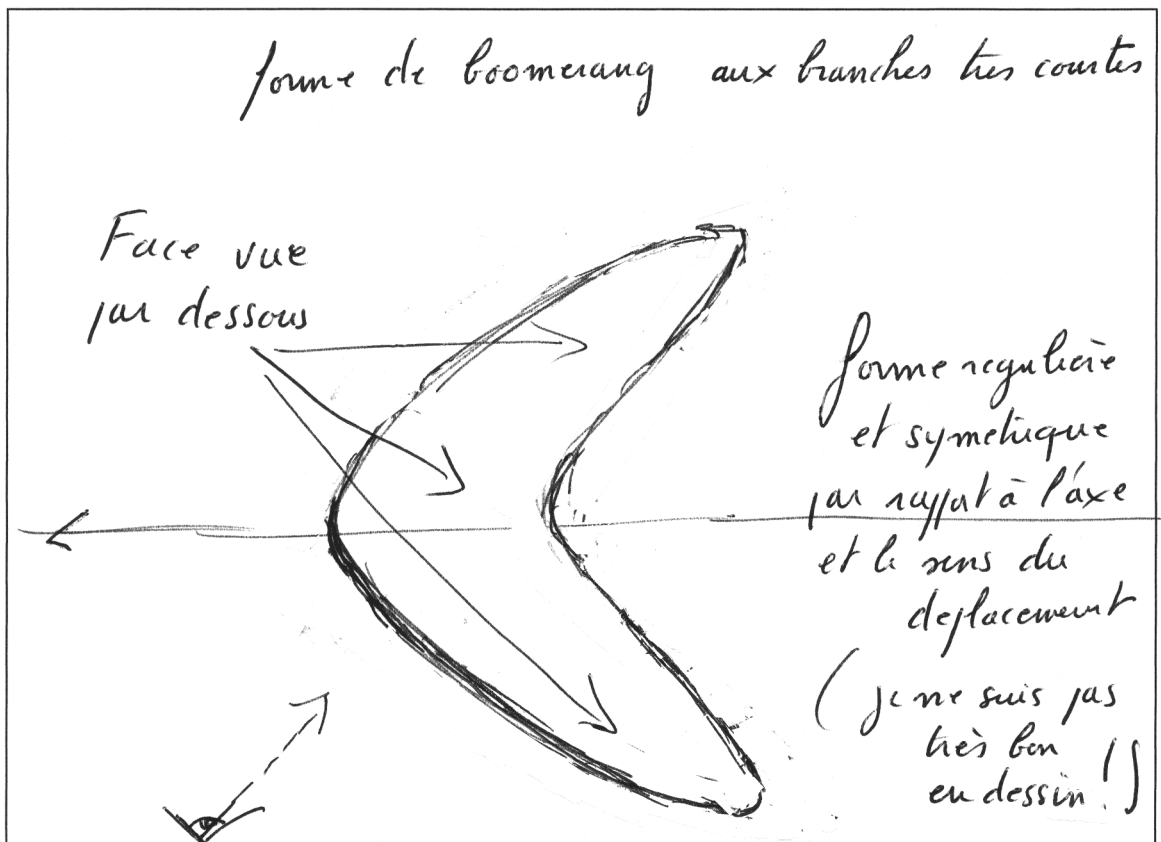 forme de boomerang aux branches tres courtes
Face vue
par dessous
forme reguliere
et symetrique
par rapport à l'axe
et le sens du
deplacement
(je ne suis pas
très bon
en dessin !)